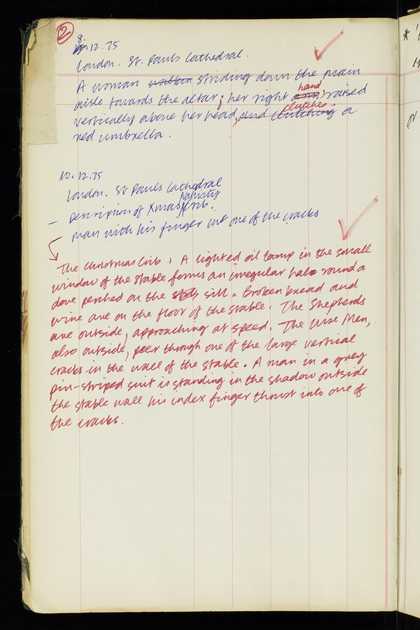 2
8.12.75
London. St. Pauls Cathedral.
A woman striding down the main
aisle towards the altar; her right hand raised
vertically above her head, clutches a
red umbrella.
10.12.75
London. St Pauls Cathedral
– Description of Xmas Nativity Crib.
man with his finger in one of the cracks
The Christmas Crib. A lighted oil lamp in the small
window of the stable forms an irregular halo round a
dove perched on the sill. Broken bread and
wine are on the floor of the stable. The Shepherds
are outside, approaching at speed. The Wise Men,
also outside, peer through one of the large vertical
cracks in the wall of the stable. A man in a grey
pin-striped suit is standing in the shadow outside
the stable wall his index finger thrust into one of
the cracks.